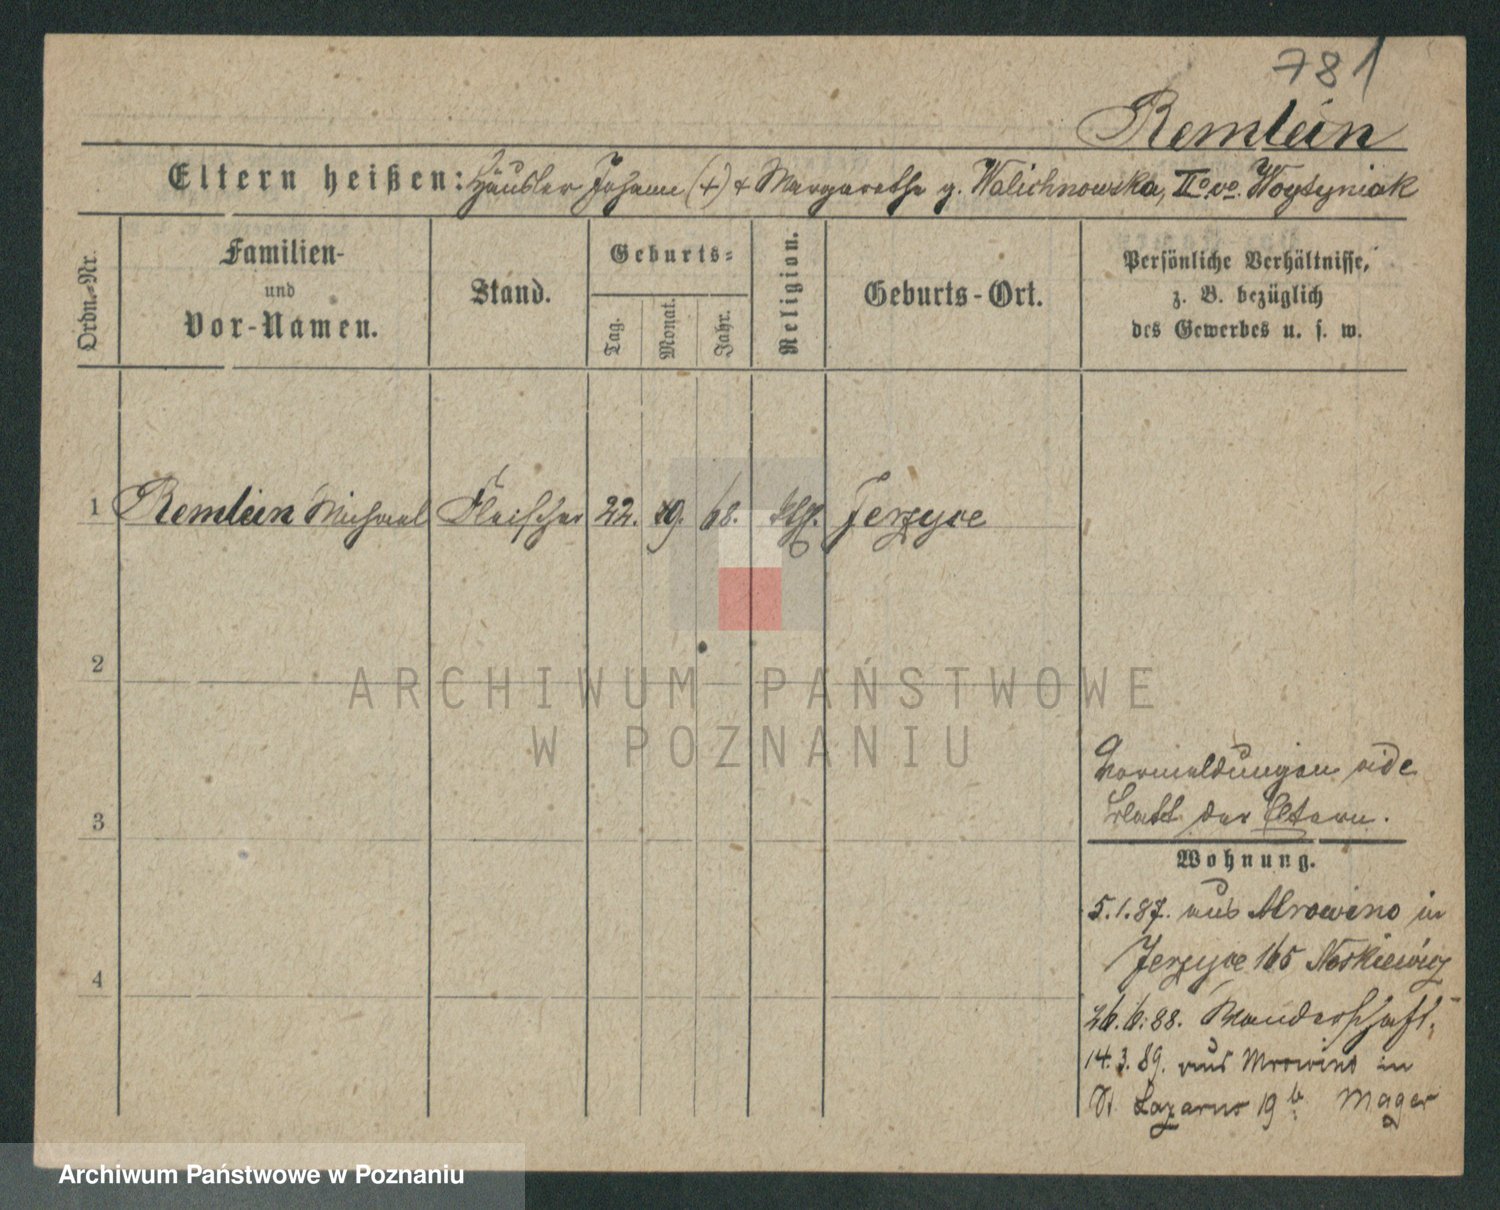 781
Remlein
Eltern heißen: Häusler Johann (+) + Margarethe g. Walichnowska, IIo vo. Woytyniak
Ordn.-Nr.
Familien-
und
Vor-Namen.
Stand.
Geburts-
Tag.
Monat.
Jahr.
Religion.
Geburts-Ort.
Persönliche Verhältnisse,
z. B. bezüglich
des Gewerbes u. s. w.
1 Remlein Michael Fleischer 22. 9. 68. kth. Jerzyce
2
3
4
Vormeldungen vide
Blatt der Eltern.
Wohnung.
5.1.87. aus Mrowino in
Jerzyce 165 Noskiewicz
26.6.88. Wanderschaft.
14.3.89. aus Mrowino in
St Lazarus 19 b. Mager
ARCHIWUM PAŃSTWOWE
W POZNANIU
Archiwum Państwowe w Poznaniu